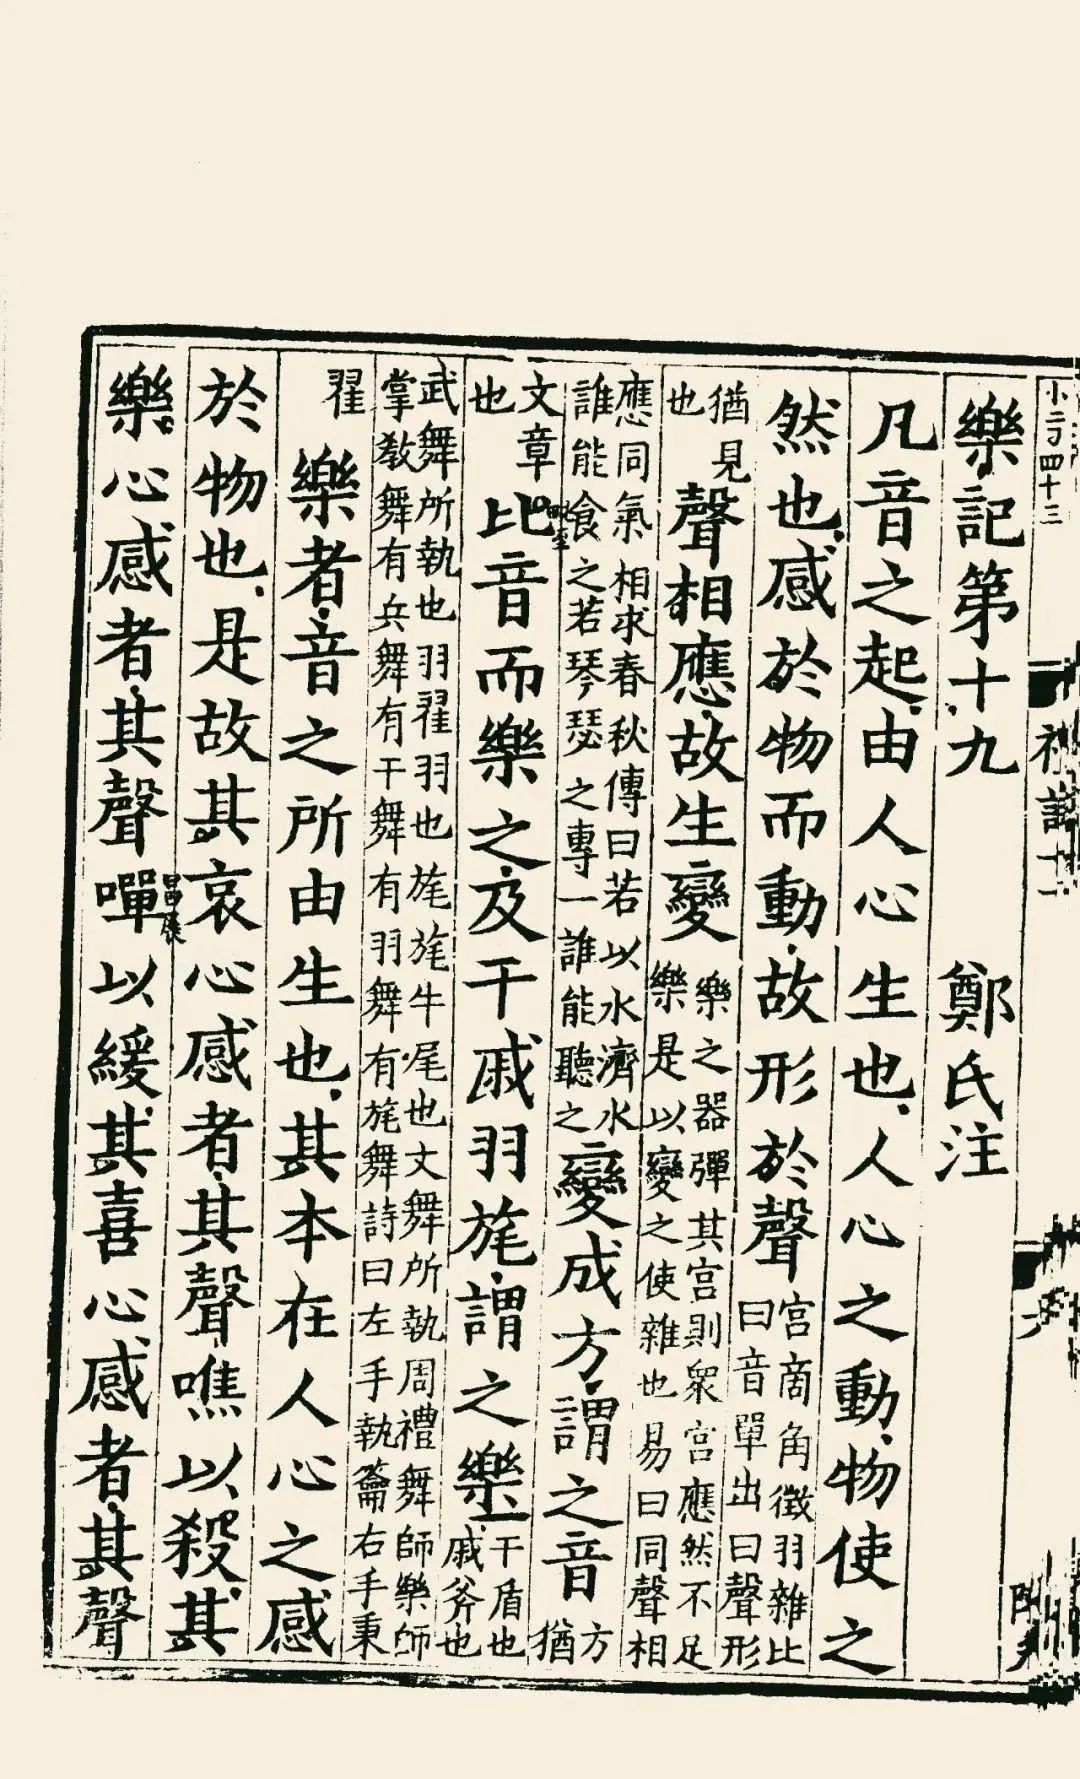 小二百四十三
樂記第十九 鄭氏注
凡音之起由人心生也人心之動物使之
然也感於物而動故形於聲宮商角徵羽雜比
曰音單出曰聲形
猶見
也聲相應故生變樂之器彈其宮則衆宮應然不足
樂是以變之使雜也易曰同聲相
應同氣相求春秋傳曰若以水濟水
誰能食之若琴瑟之專一誰能聽之變成方謂之音方
猶
文章
也比音而樂之及干戚羽旄謂之樂干盾也
戚斧也
武舞所執也羽翟羽也旄旄牛尾也文舞所執周禮舞師樂師
掌教舞有兵舞有干舞有羽舞有旄舞詩曰左手執籥右手秉
翟樂者音之所由生也其本在人心之感
於物也是故其哀心感者其聲噍以殺其
樂心感者其聲嘽昌展以緩其喜心感者其聲